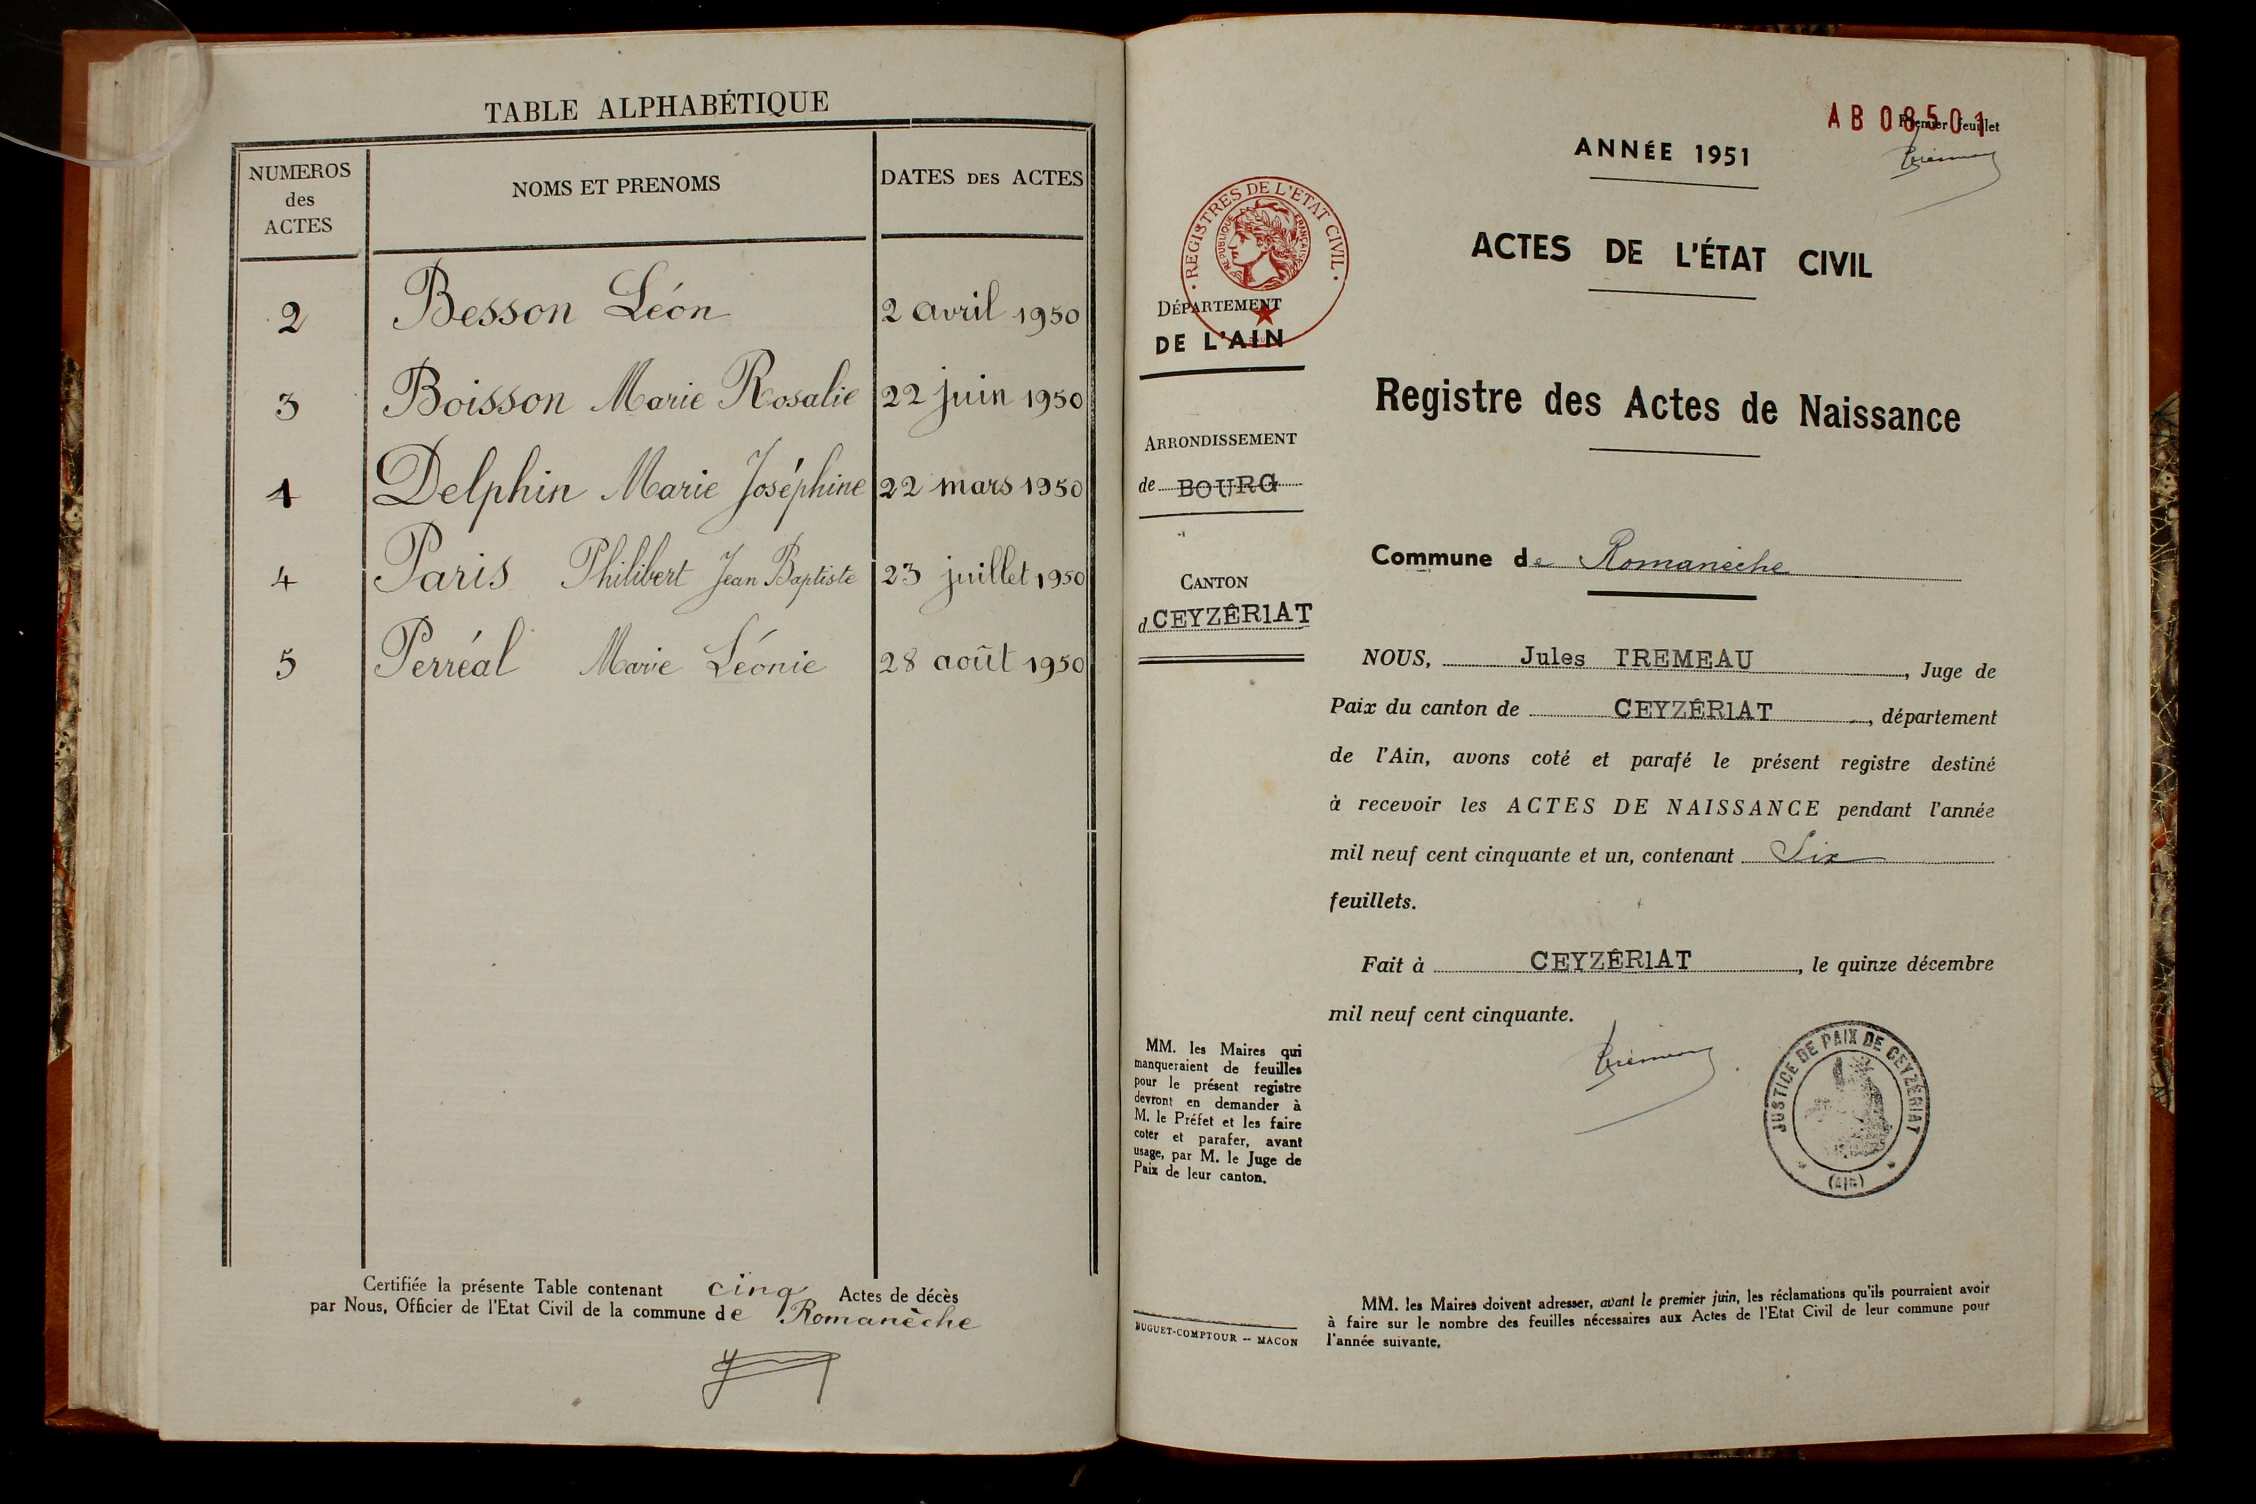 TABLE ALPHABÉTIQUE
NUMEROS des ACTES
NOMS ET PRENOMS
DATES DES ACTES
2 Besson Léon 2 avril 1950
3 Boisson Marie Rosalie 22 juin 1950
1 Delphin Marie Joséphine 22 mars 1950
4 Paris Philibert Jean Baptiste 23 juillet 1950
5 Perréal Marie Léonie 28 août 1950
Certifiée la présente Table contenant cinq Actes de décès
par Nous, Officier de l'Etat Civil de la commune de Romanèche
AB08501
Premier feuillet
ANNÉE 1951
ACTES DE L'ÉTAT CIVIL
· REGISTRES DE L'ETAT CIVIL ·
REPUBLIQUE FRANÇAISE
DÉPARTEMENT
DE L'AIN
Registre des Actes de Naissance
ARRONDISSEMENT
de BOURG
Commune de Romanèche
CANTON
d CEYZÉR1AT
NOUS, Jules TREMEAU, Juge de
Paix du canton de CEYZÉR1AT, département
de l'Ain, avons coté et parafé le présent registre destiné
à recevoir les ACTES DE NAISSANCE pendant l'année
mil neuf cent cinquante et un, contenant Six
feuillets.
Fait à CEYZÉR1AT, le quinze décembre
mil neuf cent cinquante.
JUSTICE DE PAIX DE CEYZÉRIAT
(AIN)
MM. les Maires qui
manqueraient de feuilles
pour le présent registre
devront en demander à
M. le Préfet et les faire
coter et parafer, avant
usage, par M. le Juge de
Paix de leur canton.
BUGUET-COMPTOUR -- MACON
MM. les Maires doivent adresser, avant le premier juin, les réclamations qu'ils pourraient avoir
à faire sur le nombre des feuilles nécessaires aux Actes de l'Etat Civil de leur commune pour
l'année suivante.